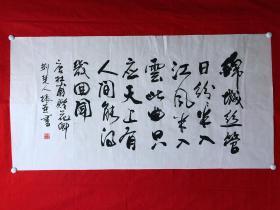 錦城丝管
日纷々半入
江风半入
雲此曲只
应天上有
人间能得
幾回闻
唐杜甫赠花卿
人 書